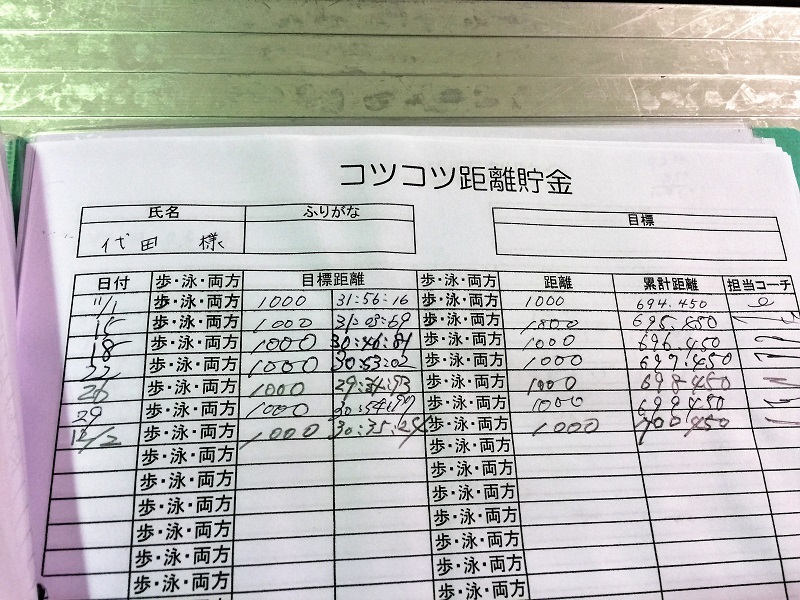 コツコツ距離貯金
氏名 ふりがな 目標
代田 様
日付 歩・泳・両方 目標距離 歩・泳・両方 距離 累計距離 担当コーチ
11/1 歩・泳・両方 1000 31:56:16 歩・泳・両方 1000 694.450
15 歩・泳・両方 1000 歩・泳・両方 1000 695.450
18 歩・泳・両方 1000 30:46:81 歩・泳・両方 1000 696.450
22 歩・泳・両方 1000 30:53:02 歩・泳・両方 1000 697.450
26 歩・泳・両方 1000 歩・泳・両方 1000 698.450
29 歩・泳・両方 1000 歩・泳・両方 1000 699.450
12/2 歩・泳・両方 1000 歩・泳・両方 1000 700.450
歩・泳・両方 歩・泳・両方
歩・泳・両方 歩・泳・両方
歩・泳・両方 歩・泳・両方
歩・泳・両方 歩・泳・両方
歩・泳・両方 歩・泳・両方
歩・泳・両方 歩・泳・両方
歩・泳・両方 歩・泳・両方